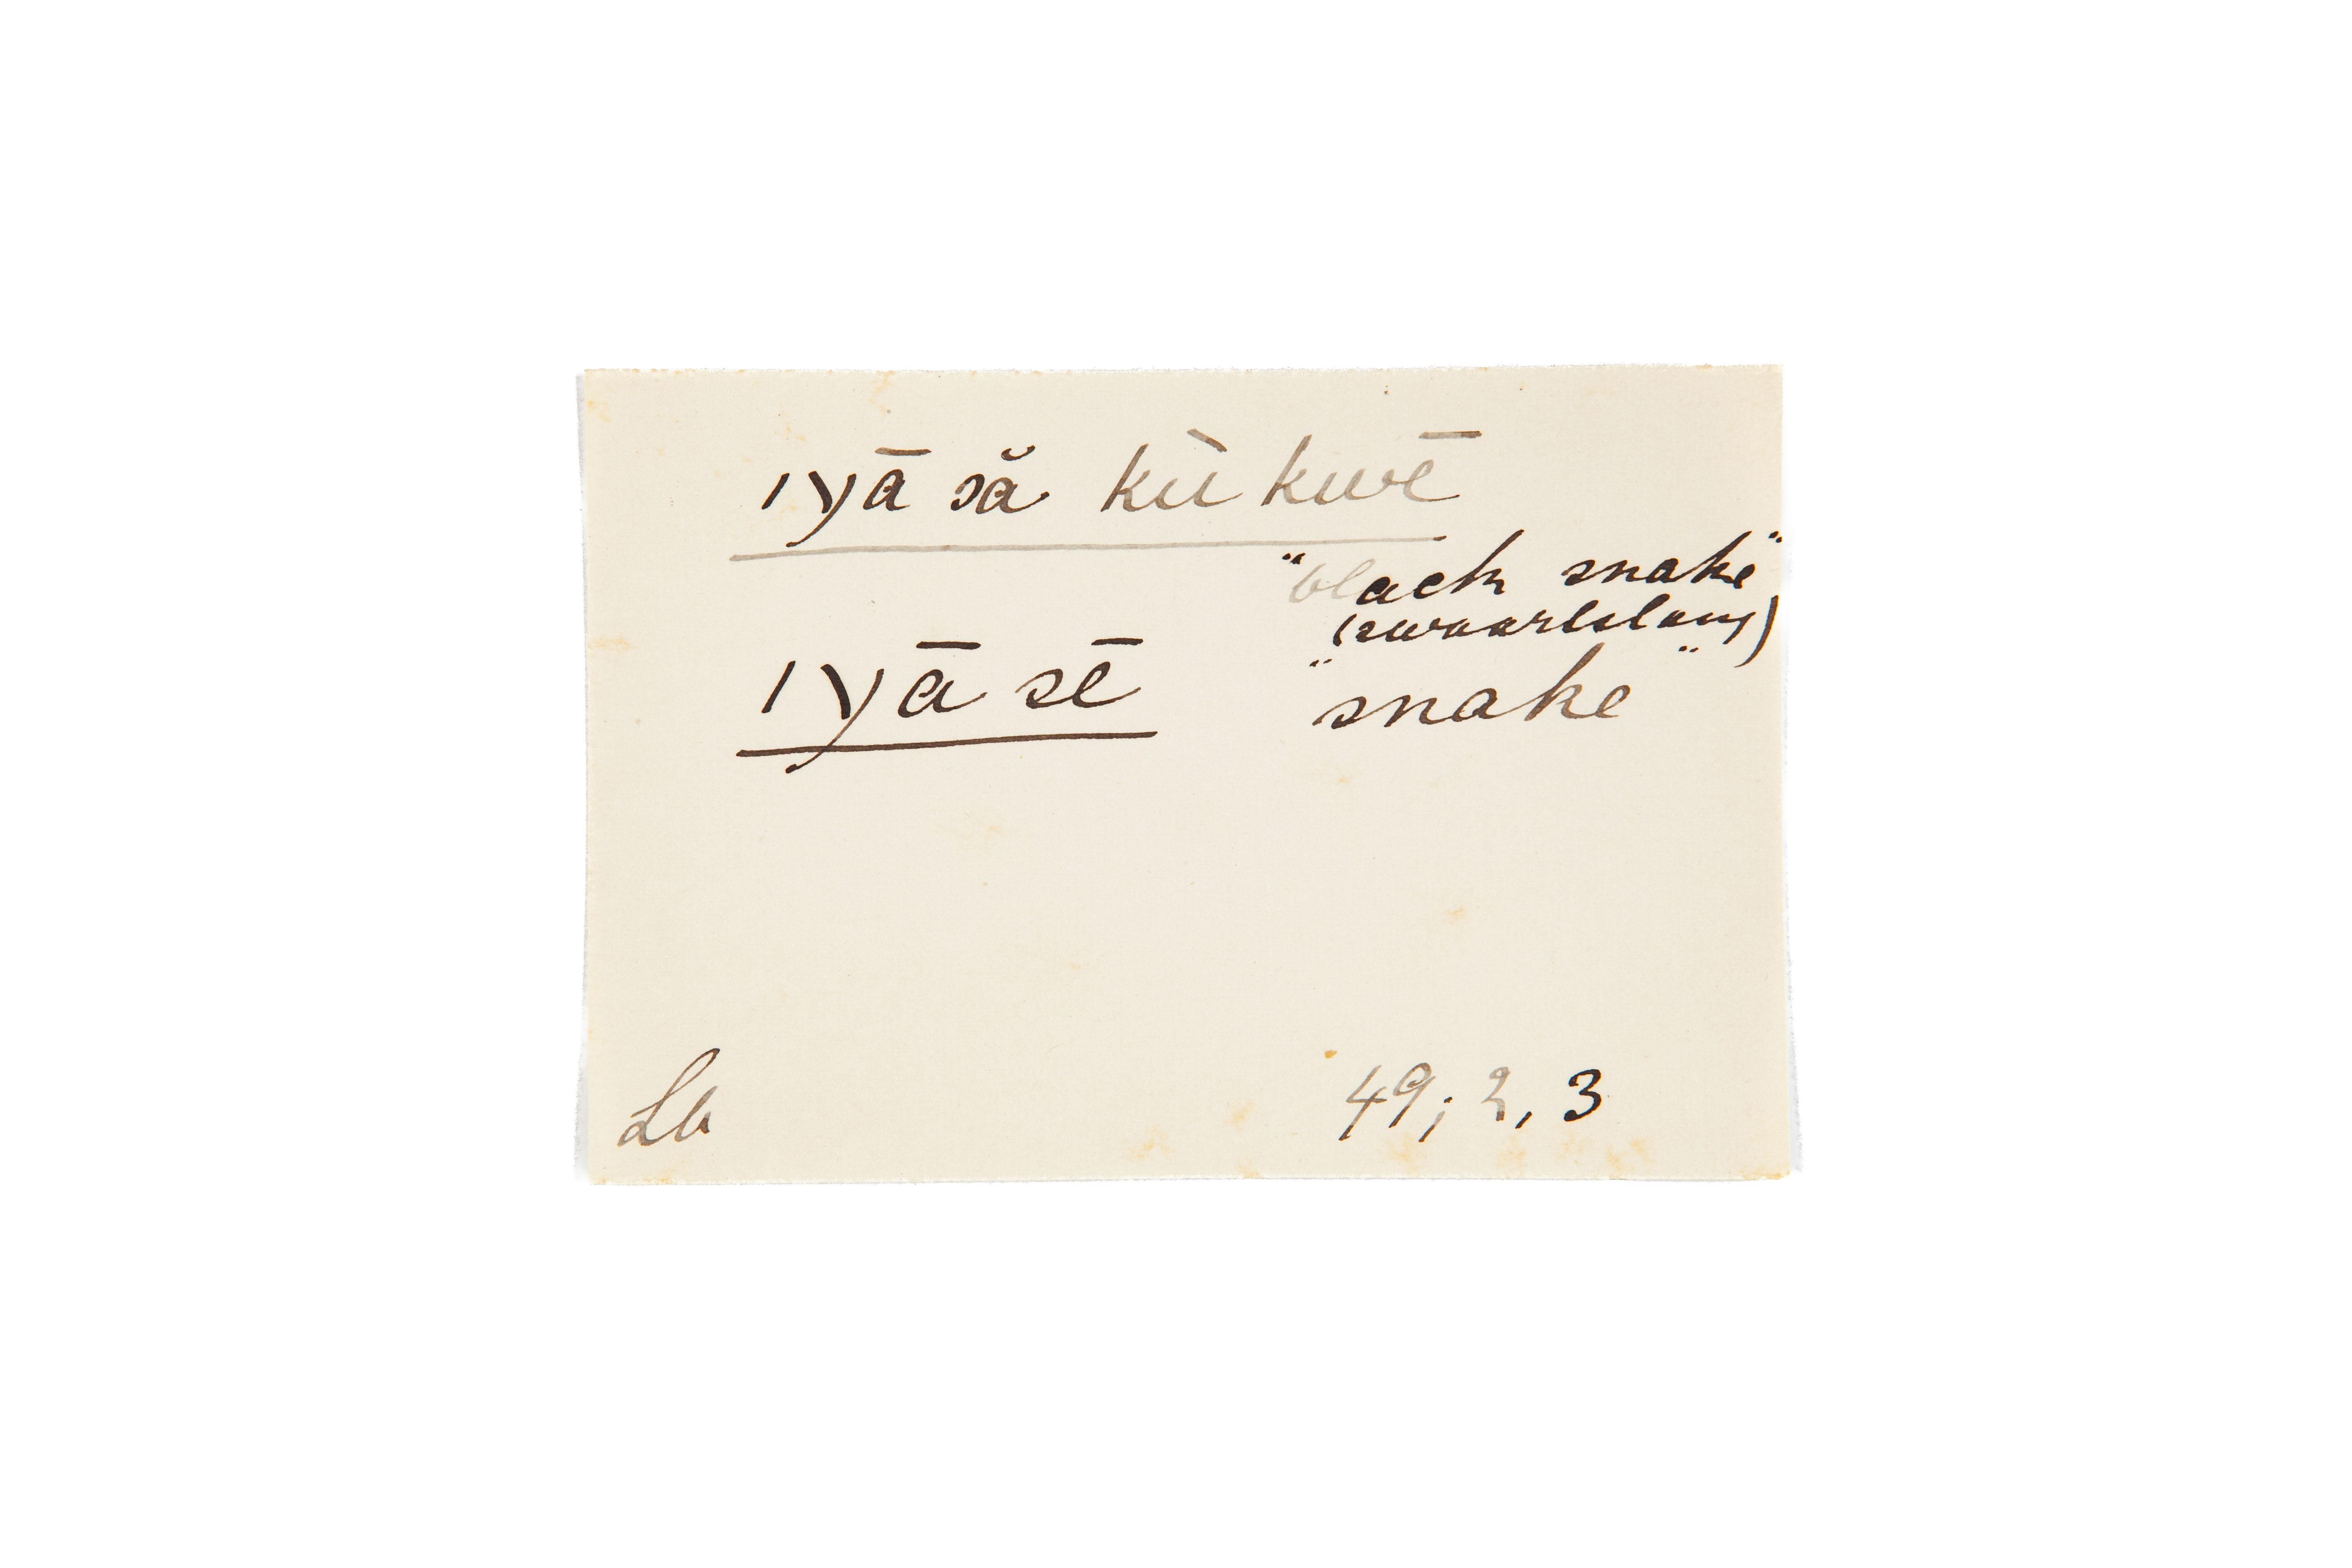 ǀyā să kù kwē
"black snake"
(zwaartslang)
ǀyā sē "snake"
Lb 49; 2, 3